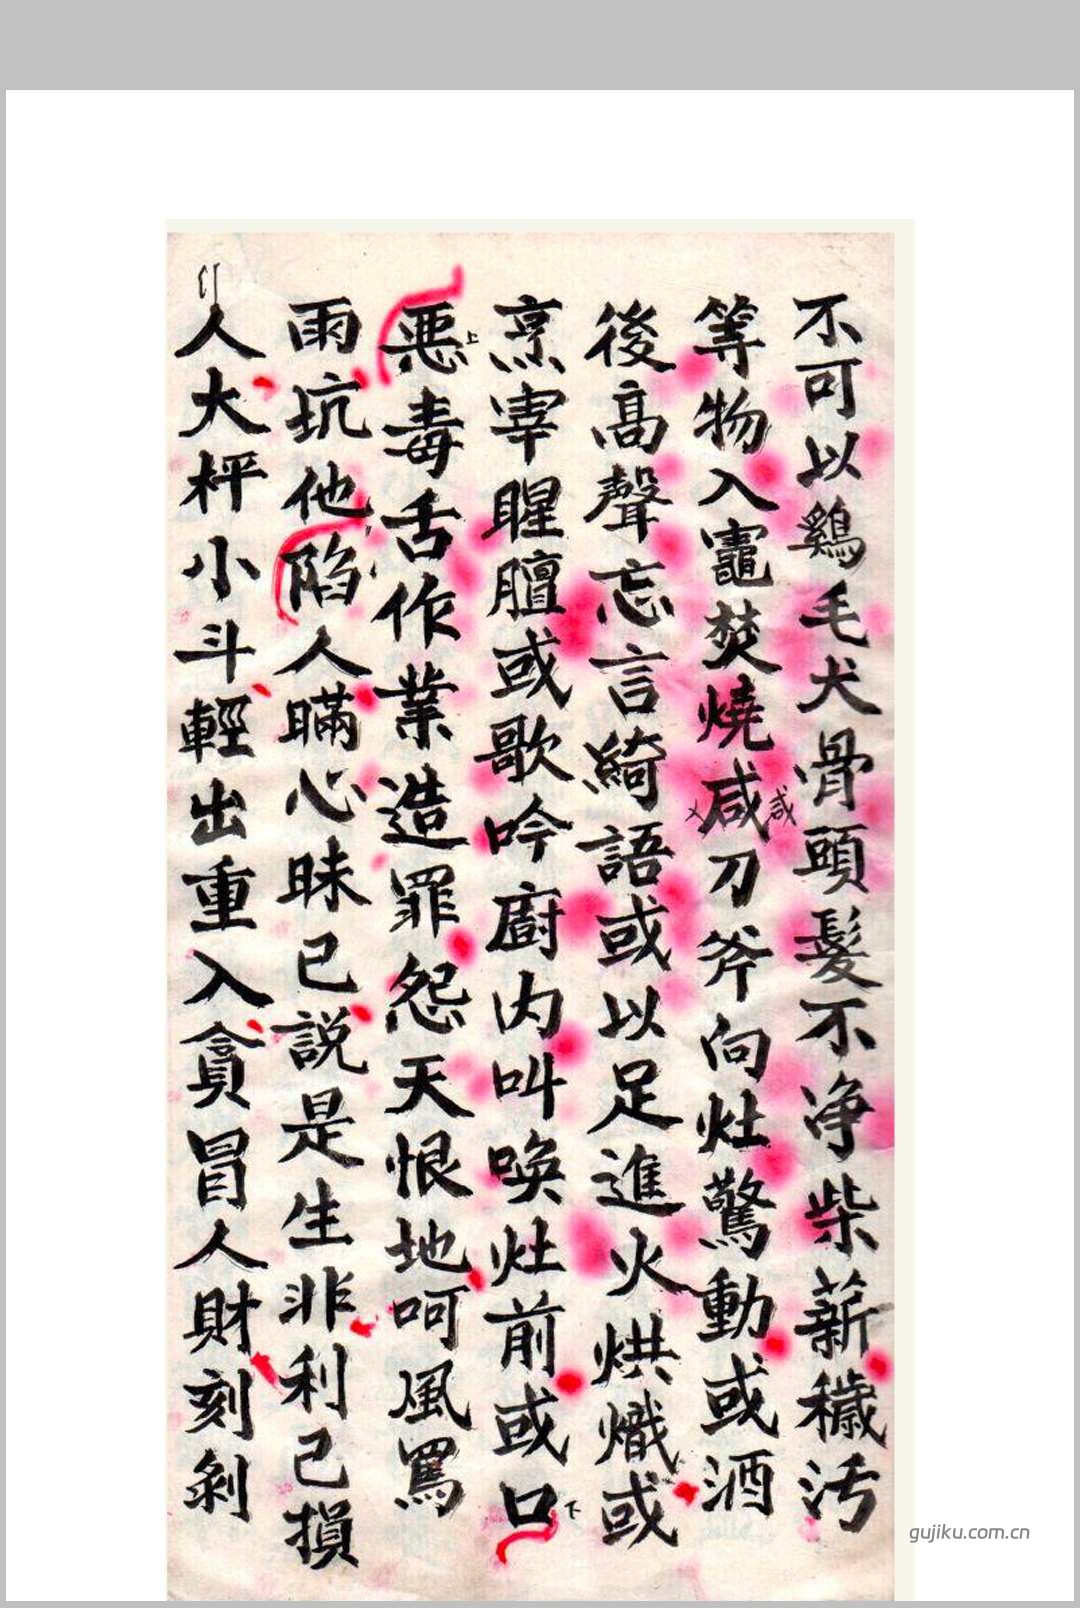 不可以鷄毛犬骨頭髮不净柴薪穢汚
等物入竈焚燒咸刀斧向灶驚動或酒
咸
後高聲忘言綺語或以足進火烘熾或
烹宰腥膻或歌吟廚内叫唤灶前或口
下
上
惡毒舌作業造罪怨天恨地呵風罵
雨坑他陷人瞞心昧己説是生非利己損
人大枰小斗輕出重入貪冒人財刻剝
gujiku.com.cn